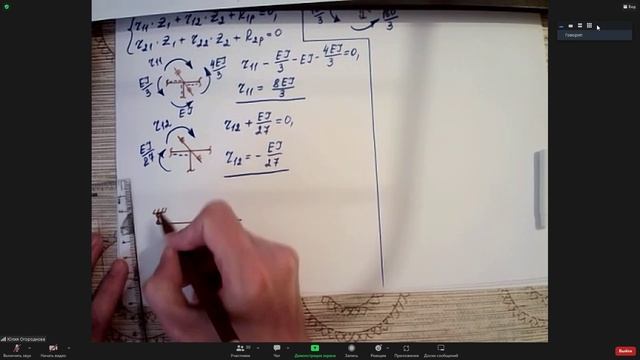 r11·Z1+r12·Z2+R1p=0,
r21·Z1+r22·Z2+R2p=0
r11
EJ/3
4EJ/3
EJ
r11 - EJ/3 - EJ - 4EJ/3 = 0,
r11 = 8EJ/3
r12
EJ/27
r12 + EJ/27 = 0,
r12 = - EJ/27
Вид
Говорит:
Юлия Огороднова
Включить звук
Начать видео
Участники
Чат
Демонстрация экрана
Запись
Реакции
Приложения
Доски сообщений
Выйти